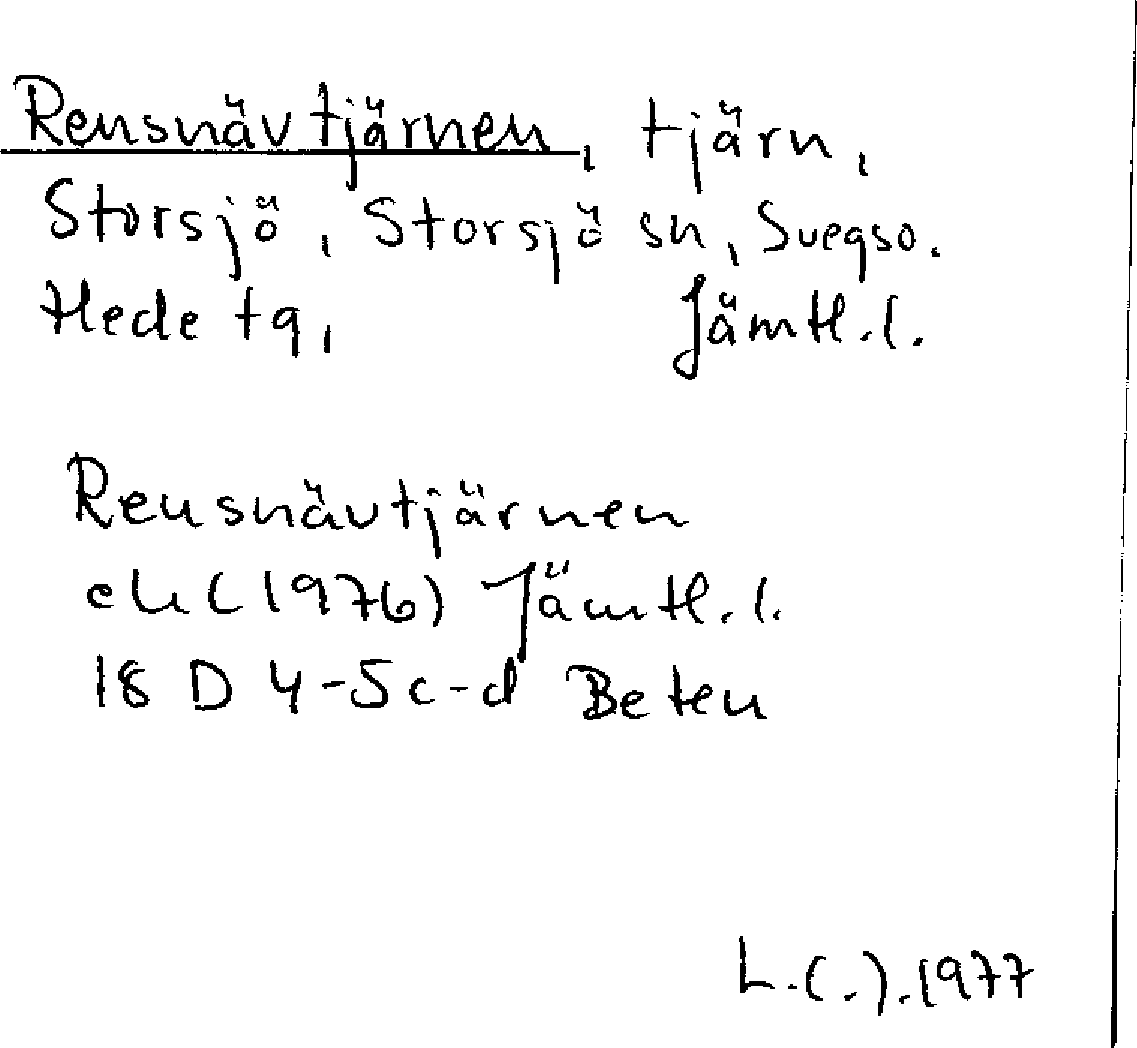 Rensnävtjärnen, tjärn,
Storsjö, Storsjö sn, Svegso.
Hede tg, Jämtl.l.
Rensnävtjärnen
ek (1976) Jämtl.l.
18 D 4-5c-d Beten
L.(.).1977